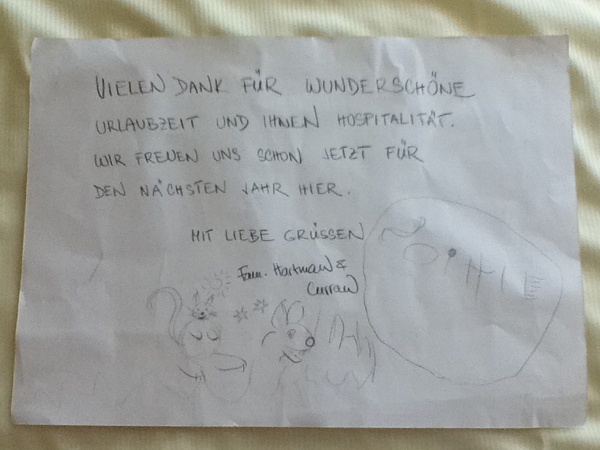 VIELEN DANK FÜR WUNDERSCHÖNE
URLAUBZEIT UND IHNEN HOSPITALITÄT.
WIR FREUEN UNS SCHON JETZT FÜR
DEN NÄCHSTEN JAHR HIER.
MIT LIEBE GRÜSSEN
Fam. Hartman &
Curran